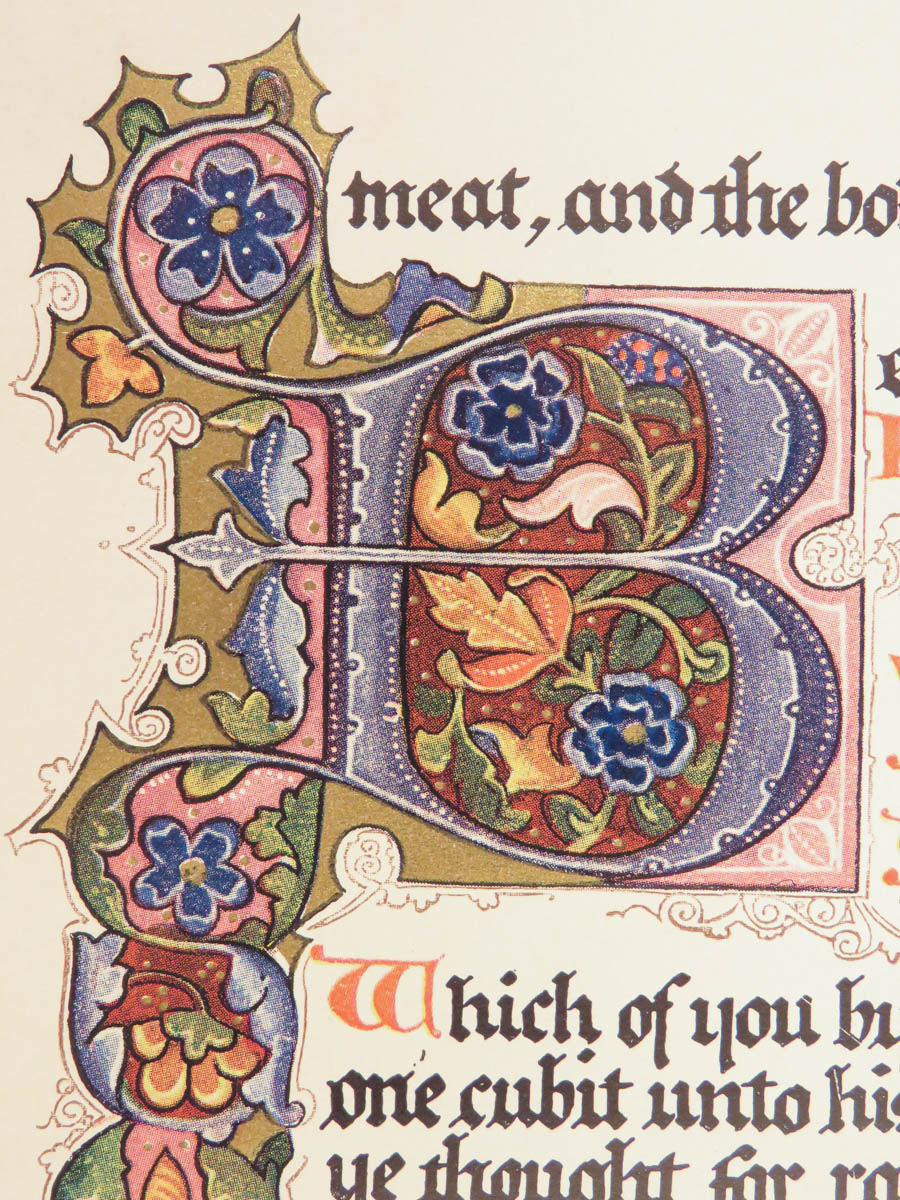 meat, and the bo
B
Which of you bu
one cubit unto his
ye thought for ra